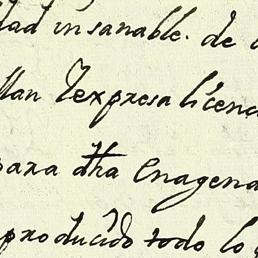 dad insanable. de
llan Yexpresa licenc
para dha enagena
producido todo lo